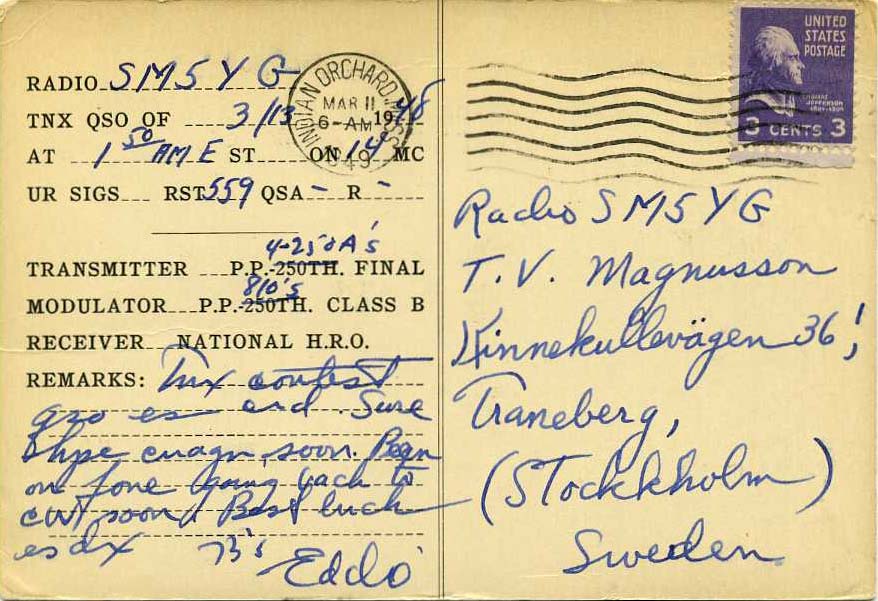 RADIO SM5YG
TNX QSO OF 3/13 1948
AT 1 50 AM E ST ON 14 MC
UR SIGS RST 559 QSA - R -
4-250A's
TRANSMITTER P.P.-250TH. FINAL
810's
MODULATOR P.P.-250TH. CLASS B
RECEIVER NATIONAL H.R.O.
REMARKS: Tnx contest
qso es crd. Sure
hpe cuagn soon. Been
on fone going back to
CW soon. Best luck
es dx 73's
Eddo
INDIAN ORCHARD, MASS.
MAR 11
6-AM
1949
UNITED
STATES
POSTAGE
THOMAS
JEFFERSON
1801-1809
3 CENTS 3
Radio SM5YG
T.V. Magnusson
Kinnekullevägen 36,
Traneberg,
(STockkholm)
Sweden